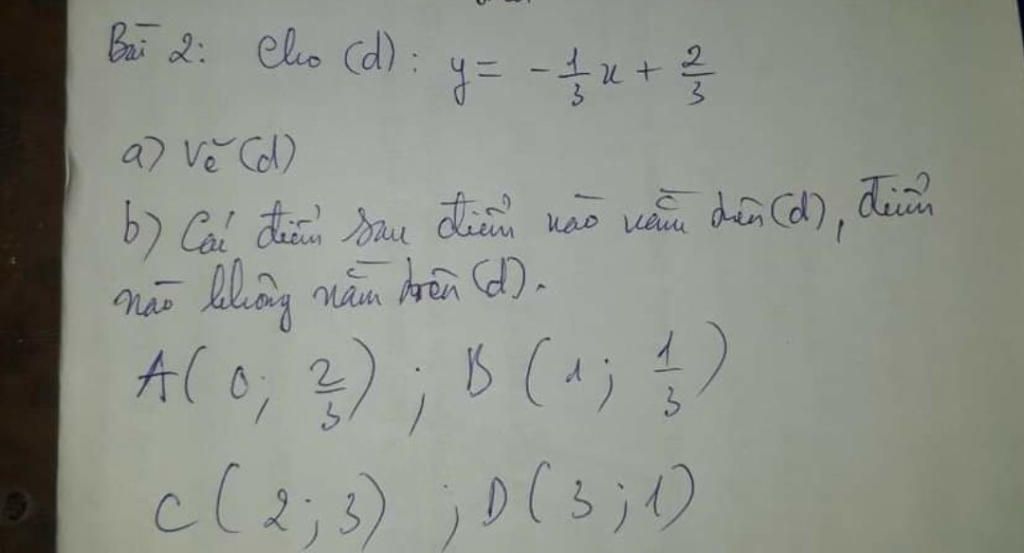 Bài 2: Cho (d): y = -1/3 x + 2/3
a) Vẽ (d)
b) Các điểm sau điểm nào nằm trên (d), điểm
nào không nằm trên (d).
A(0; 2/3) ; B(1; 1/3)
C(2; 3) ; D(3; 1)